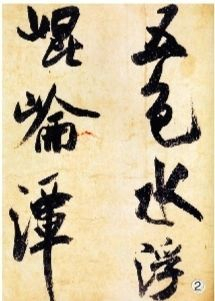 五色水浮
崐崘潭
②